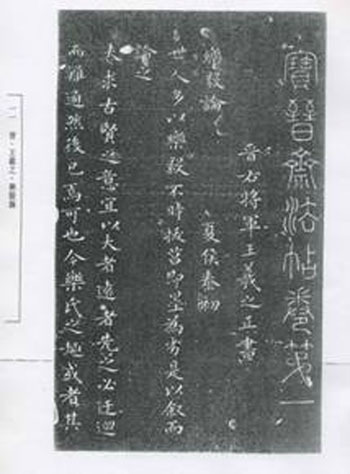 寶晉齋法帖卷第一
晉右將軍王羲之正書
樂毅論
夏侯泰初
世人多以樂毅不時拔莒即墨為劣是以叙而
論之
夫求古賢之意宜以大者遠者先之必迂迴
而難通然後已焉可也今樂氏之趣或者其
一 晉·王羲之·樂毅論